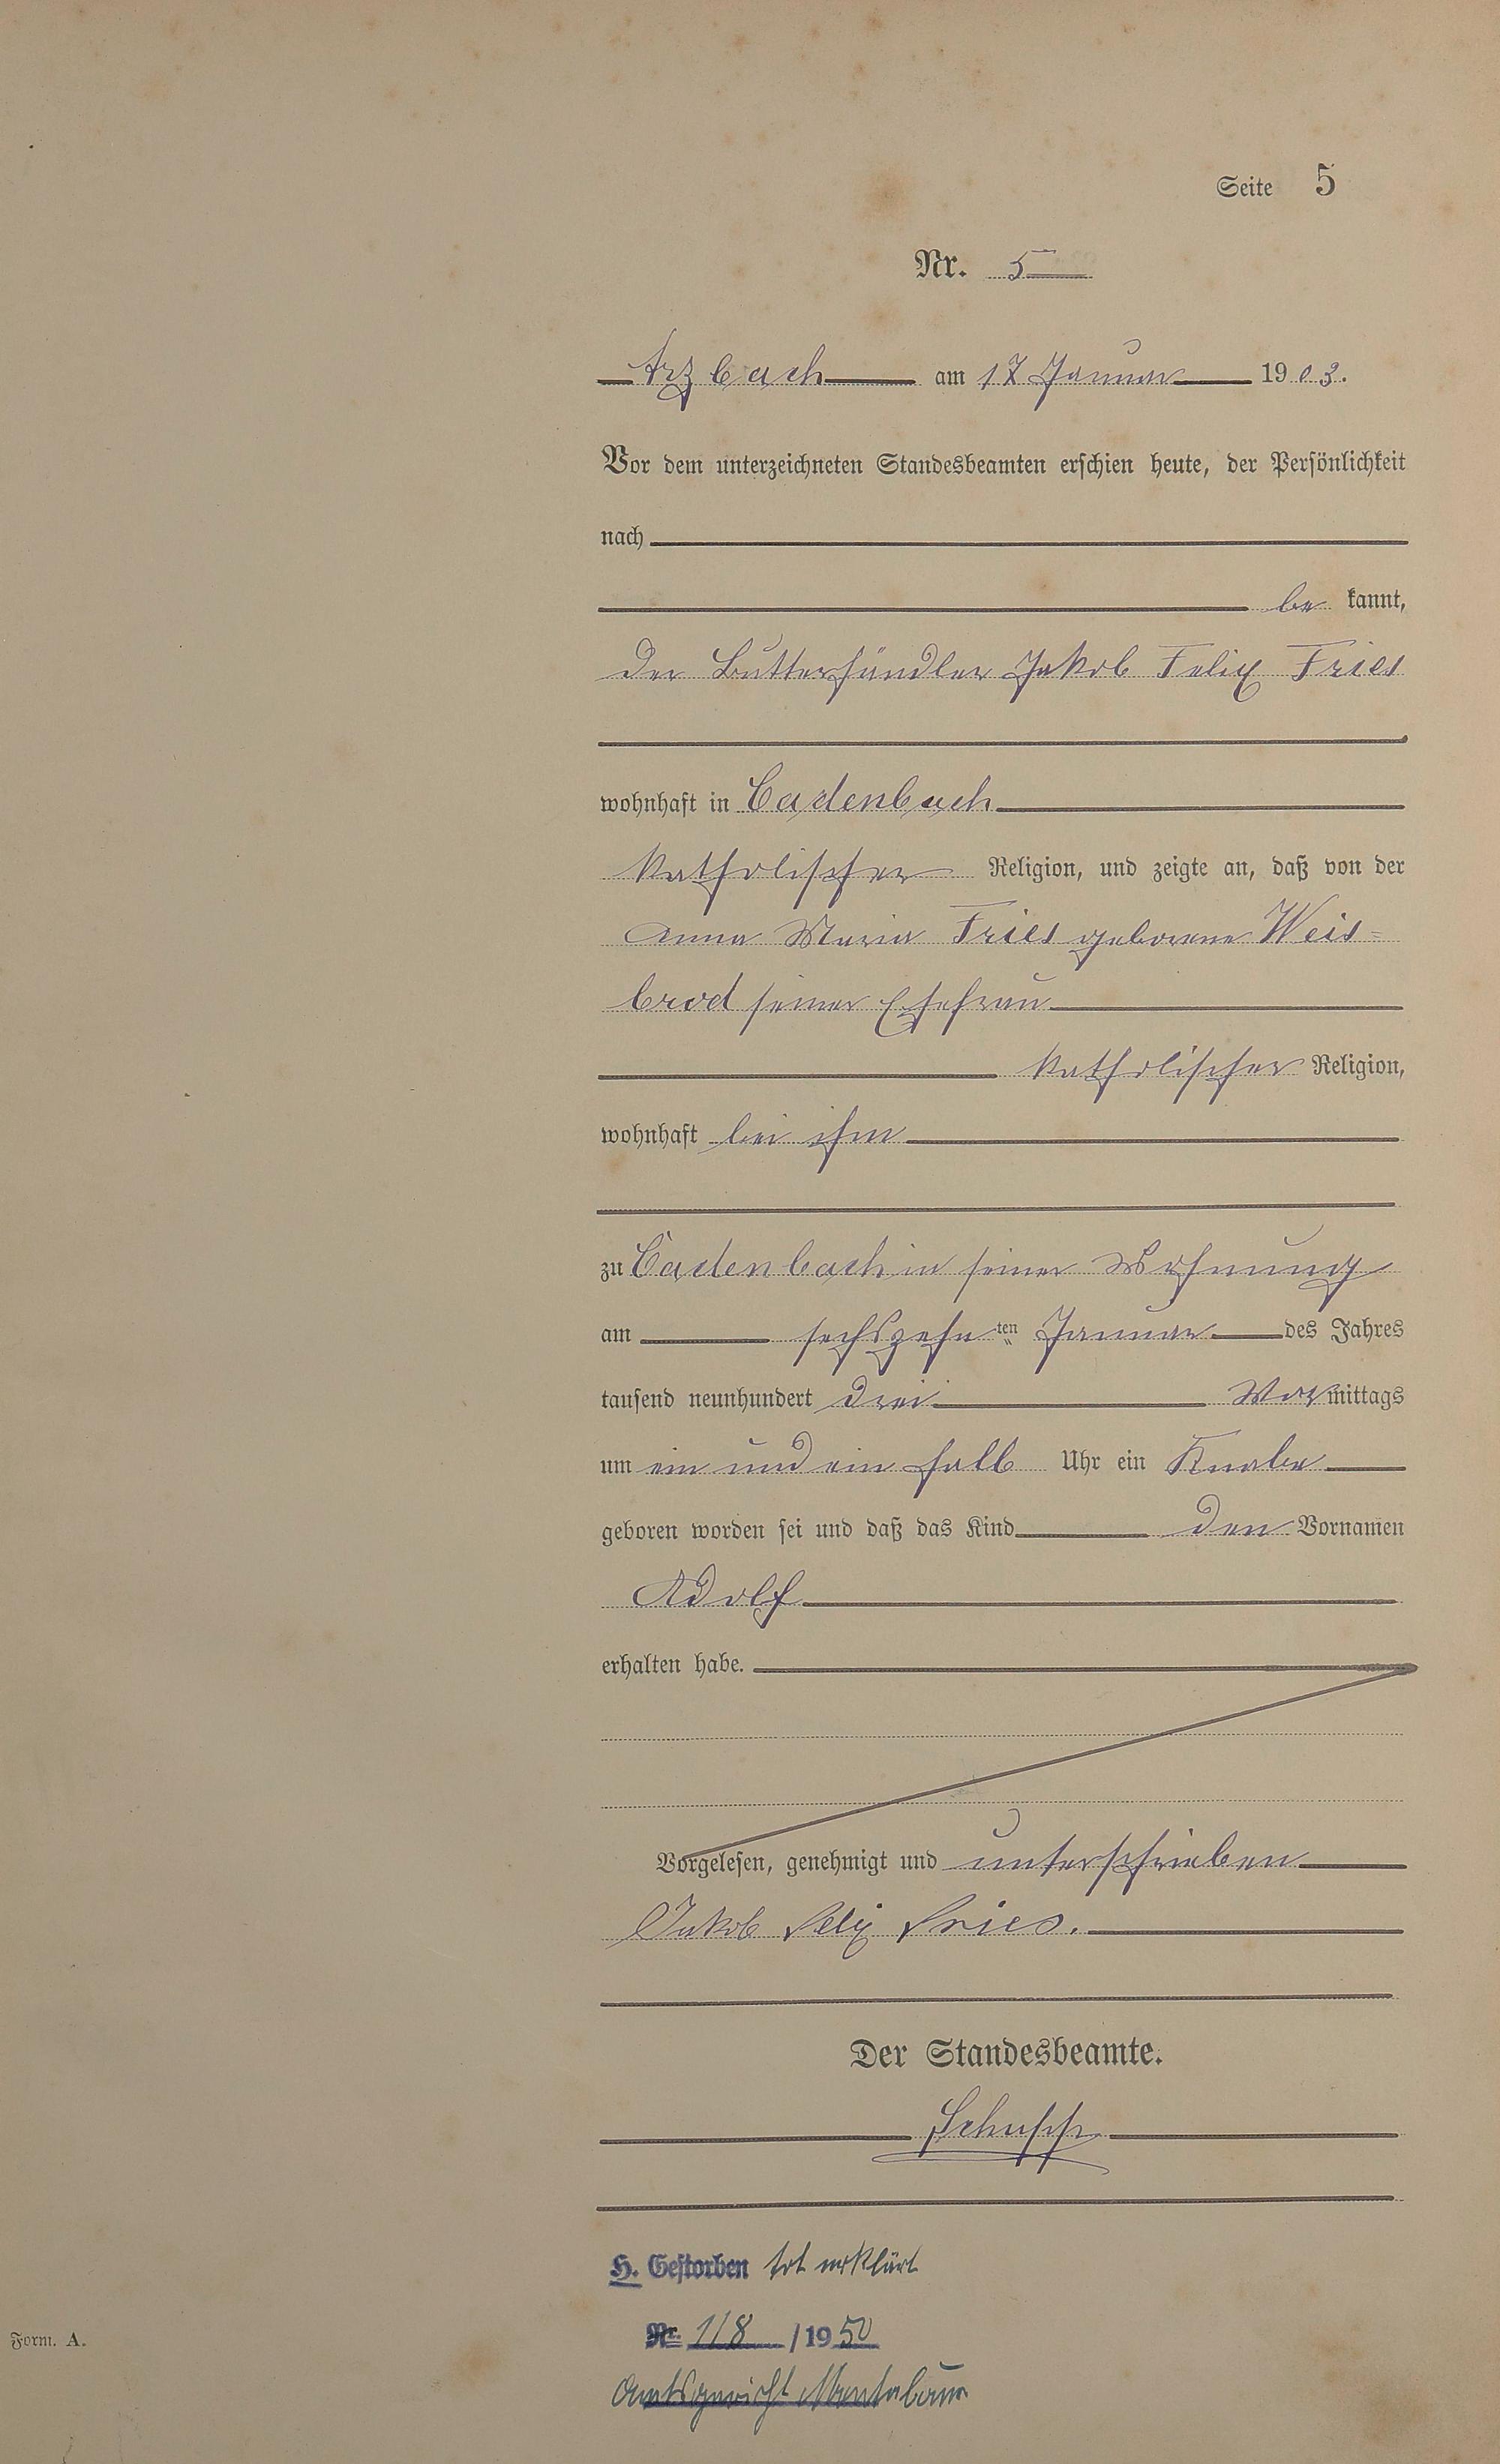 Seite 5
Nr. 5
Arzbach am 17 Januar 1903.
Vor dem unterzeichneten Standesbeamten erschien heute, der Persönlichkeit
nach
be kannt,
der Butterhändler Jakob Felix Fries
wohnhaft in Cadenbach
katholischer Religion, und zeigte an, daß von der
Anna Maria Fries geborene Weis=
brod seiner Ehefrau
katholischer Religion,
wohnhaft bei ihm
zu Cadenbach in seiner Wohnung
am sechszehn ten Januar des Jahres
tausend neunhundert drei Vormittags
um ein und ein halb Uhr ein Knabe
geboren worden sei und daß das Kind den Vornamen
Adolf
erhalten habe.
Vorgelesen, genehmigt und unterschrieben
Jakob Felix Fries.
Der Standesbeamte.
Schupp
H. Gestorben tot erklärt
Nr. 118 /1950
Form. A.
Amtsgericht Montabaur